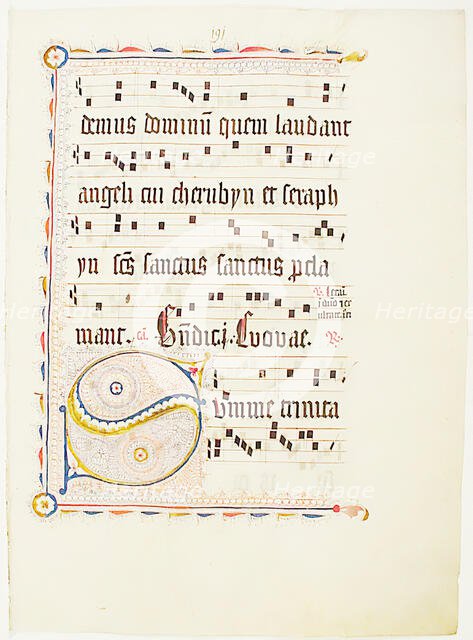 191
demus dominū quem laudant
angeli cui cherubyn et seraph
yn scs sanctus sanctus pcla
mant. Euouae.
Summe trinita
heritage
Heritage
Heritage
Heritage
Heritage